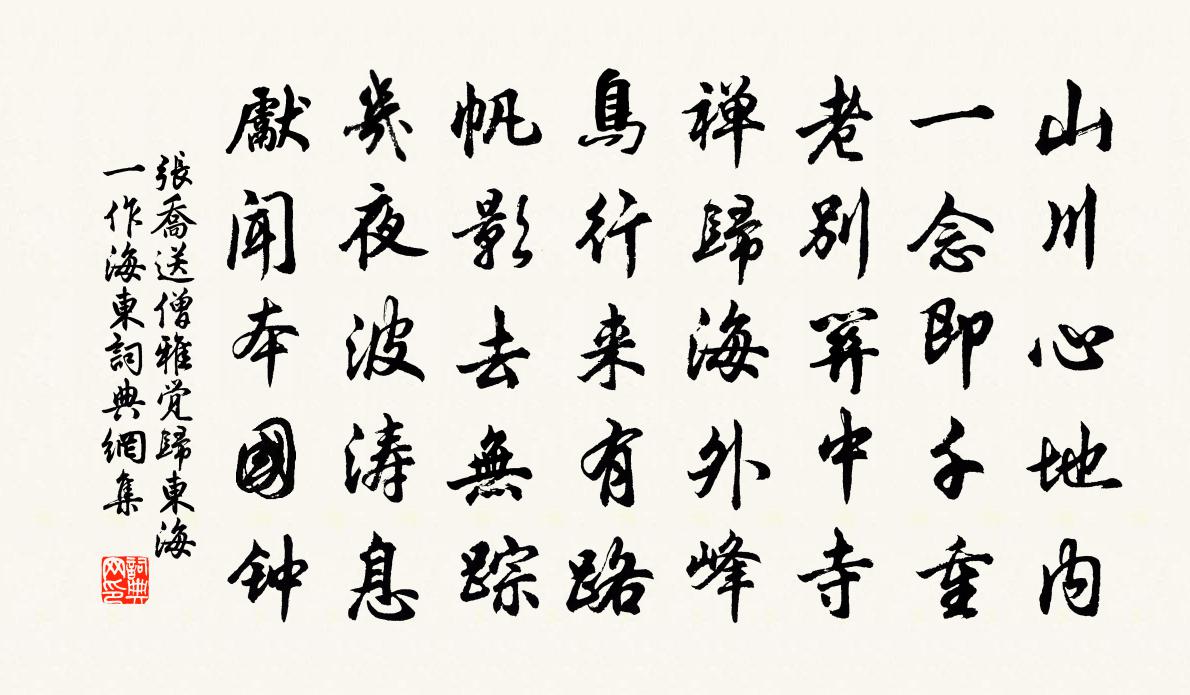 山川心地内
一念即千重
老别關中寺
禅歸海外峰
鳥行来有路
帆影去無踪
幾夜波涛息
獻聞本國钟
張喬送僧雅觉歸東海
一作海東詞典網集
詞典
网印